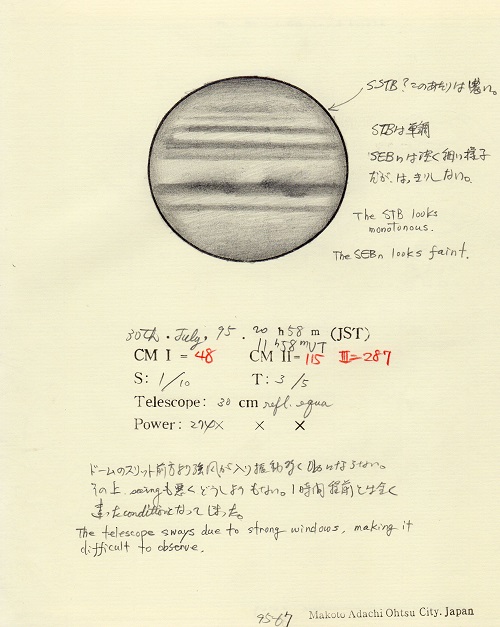 SSTB?このあたりは悪い。
STBは単調
SEBnは淡く細い様子
だが、はっきりしない。
The STB looks
monotonous.
The SEBn looks faint.
30th. July, 95. 20h58m (JST)
11h58mUT
CM I = 48 CM II= 115 III=287
S: 1/10 T: 3/5
Telescope: 30 cm refl. equa
Power: 274× × ×
ドームのスリット前方より強風が入り振動多く
その上、seeingも悪くどうしようもない。1時間程前とは全く
違ったconditionとなってしまった。
The telescope sways due to strong windows, making it
difficult to observe.
95-67 Makoto Adachi Ohtsu City. Japan